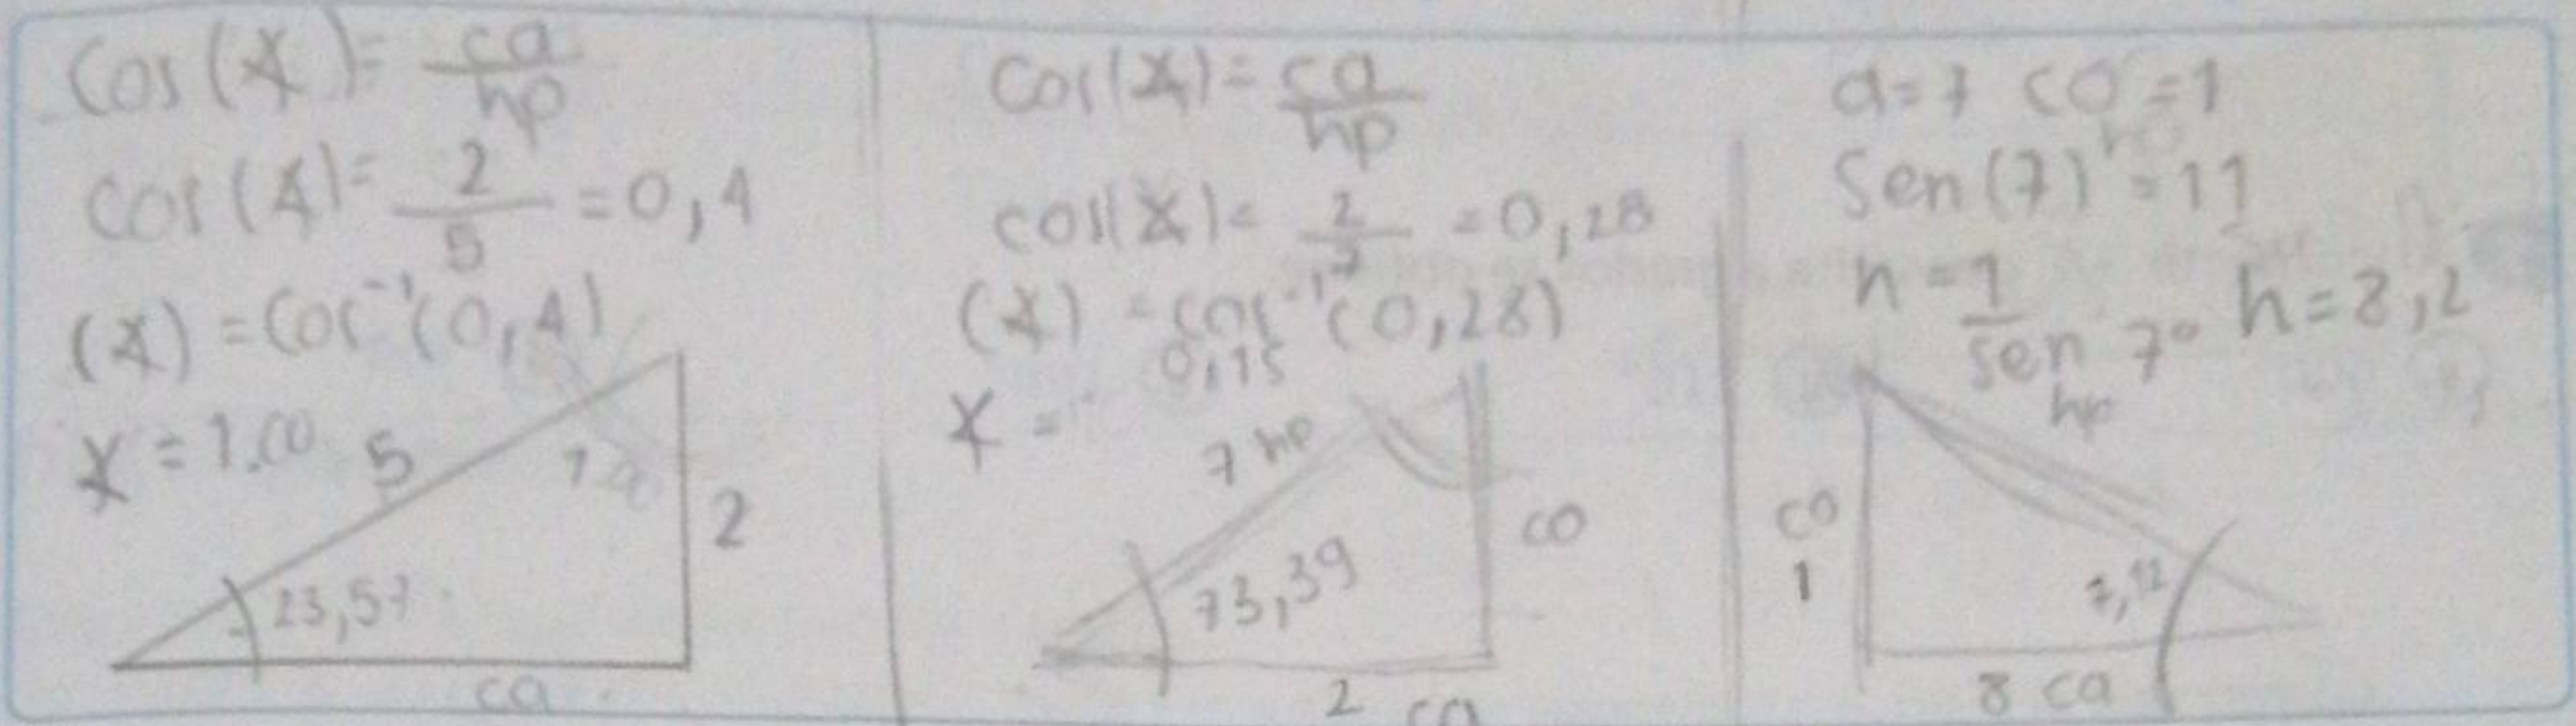 Cos(X)= ca/hp
cos(X)= 2/5 =0,4
(X) =Cos⁻¹(0,4)
X =1.00
5
2
23,57
ca
Cos(X)= ca/hp
cos(X)= 2/7 =0,28
(X) =cos⁻¹(0,28)
0,15
X =
7 hp
co
73,39
2 ca
a=7 co =1
Sen(7) =11
h = 1/Sen 7° h=8,2
hp
co
1
7,12
8 ca